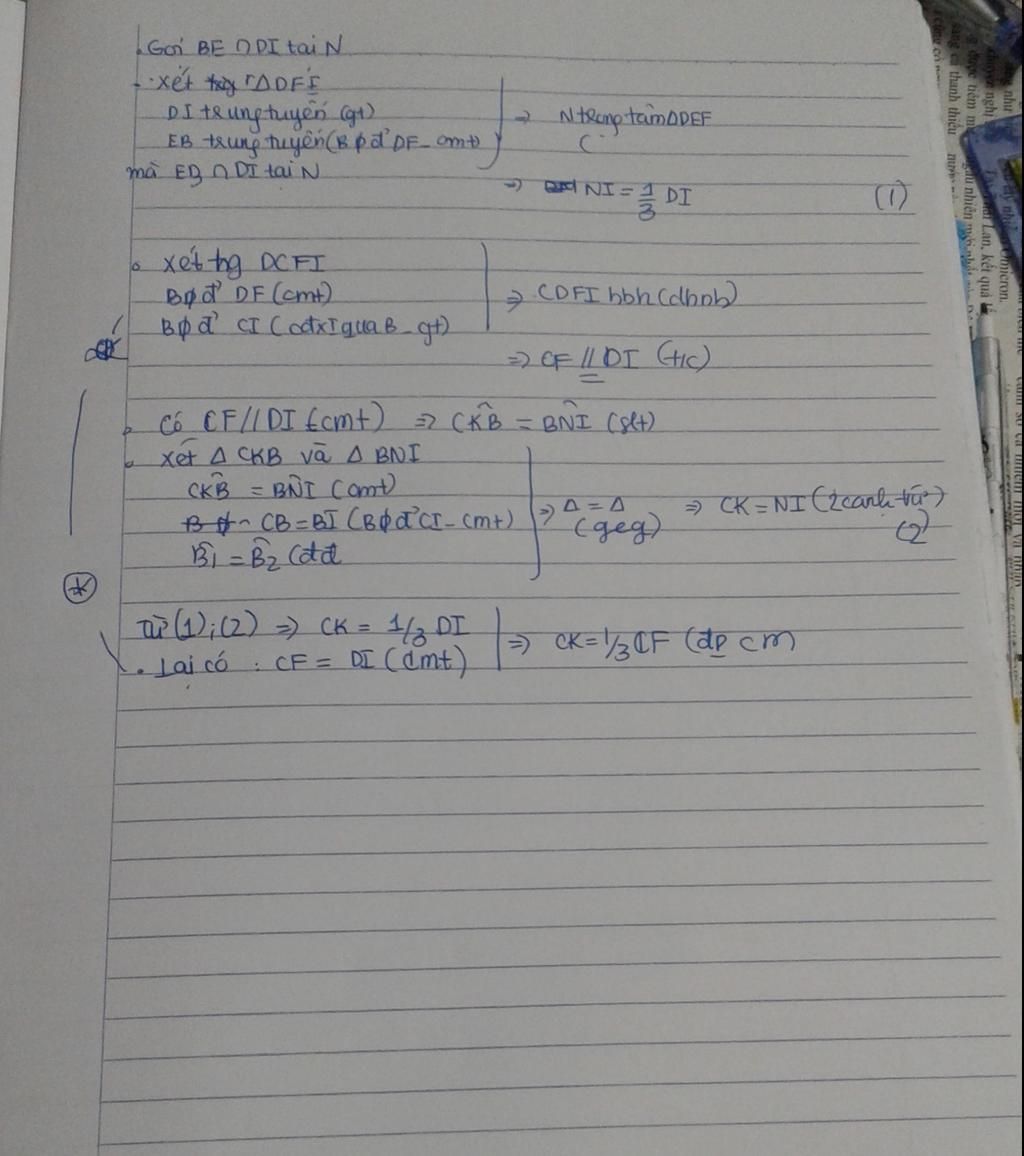 Gọi BE ∩ DI tại N
Xét Δ DFI
DI trung tuyến (gt)
EB trung tuyến (B φ đ' DF - cmt)
mà EB ∩ DI tại N
⇒ N trọng tâm Δ DEF
(
⇒ NI = 1/3 DI (1)
Xét tg DCFI
B φ đ' DF (cmt)
B φ đ' CI (C đx I qua B - gt)
⇒ CDFI hbh (dhnb)
⇒ CF // DI (t/c)
Có CF // DI (cmt) ⇒ CK̂B = BN̂I (slt)
Xét Δ CKB và Δ BNI
CK̂B = BN̂I (cmt)
CB = BI (B φ đ' CI - cmt)
B̂1 = B̂2 (đđ
⇒ Δ = Δ
(gcg)
⇒ CK = NI (2 cạnh tứ)
(2)
Từ (1); (2) ⇒ CK = 1/3 DI
Lại có : CF = DI (cmt)
⇒ CK = 1/3 CF (đpcm)
như
Omicron.
Lan, kết quả
thanh thiếu